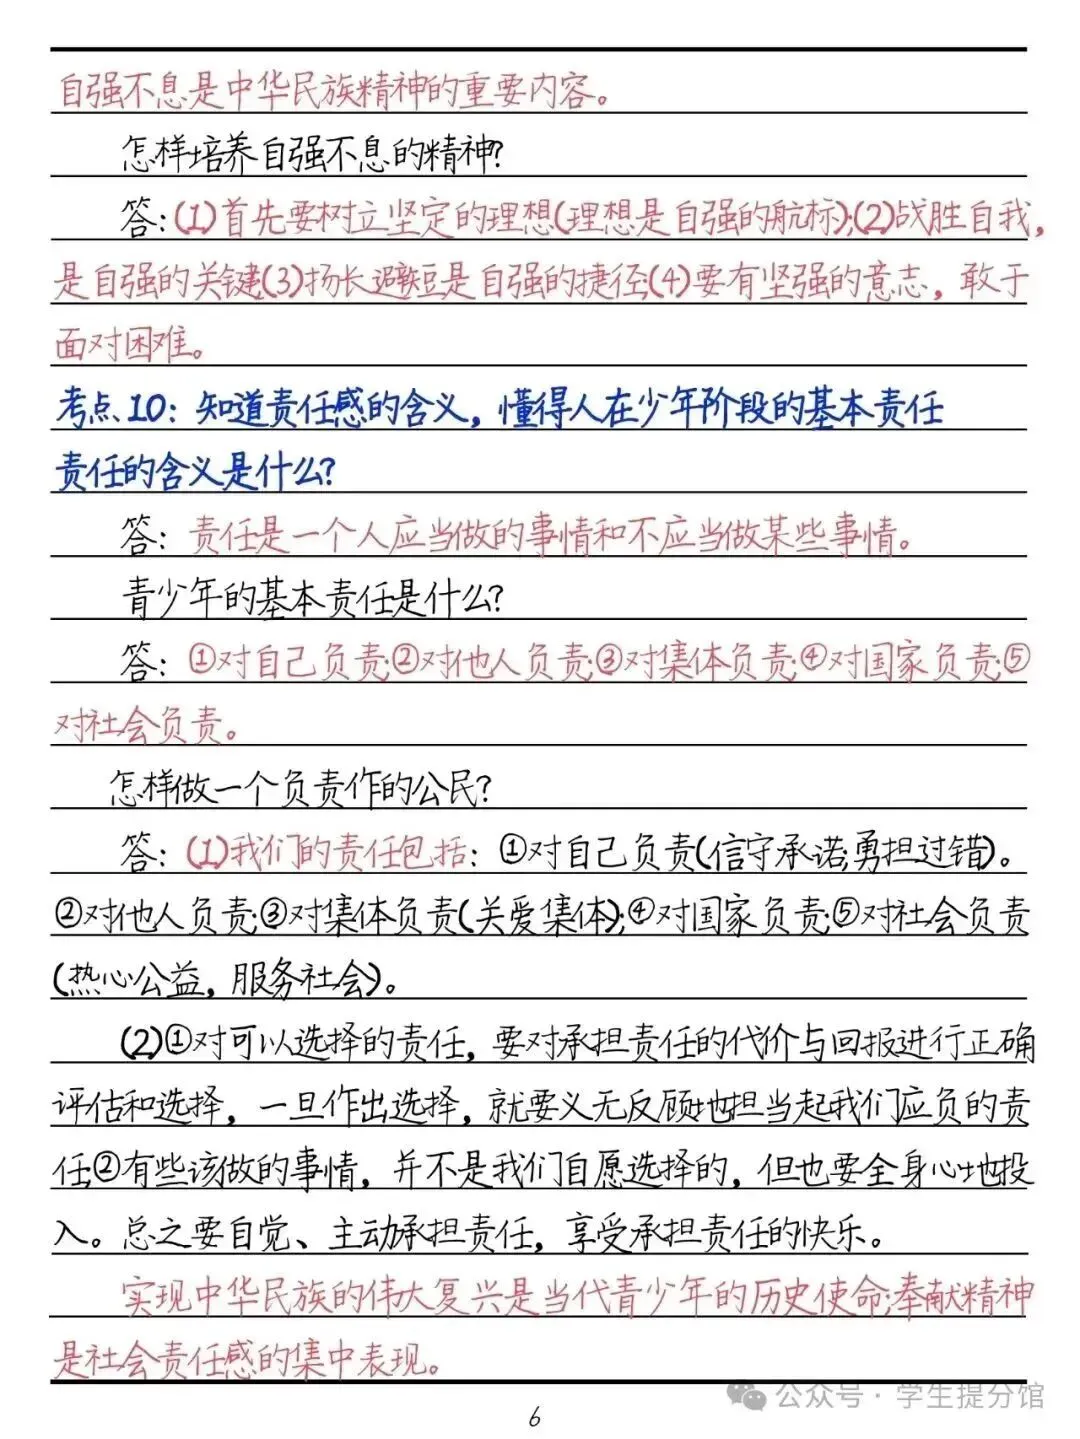 自强不息是中华民族精神的重要内容。
怎样培养自强不息的精神?
答:(1)首先要树立坚定的理想(理想是自强的航标);(2)战胜自我,
是自强的关键;(3)扬长避短是自强的捷径;(4)要有坚强的意志，敢于
面对困难。
考点10：知道责任感的含义，懂得人在少年阶段的基本责任
责任的含义是什么?
答：责任是一个人应当做的事情和不应当做某些事情。
青少年的基本责任是什么?
答：①对自己负责;②对他人负责;③对集体负责;④对国家负责;⑤
对社会负责。
怎样做一个负责作的公民?
答：(1)我们的责任包括：①对自己负责(信守承诺;勇担过错)。
②对他人负责;③对集体负责(关爱集体);④对国家负责;⑤对社会负责
(热心公益，服务社会)。
(2)①对可以选择的责任，要对承担责任的代价与回报进行正确
评估和选择，一旦作出选择，就要义无反顾地担当起我们应负的责
任;②有些该做的事情，并不是我们自愿选择的，但也要全身心地投
入。总之要自觉、主动承担责任，享受承担责任的快乐。
实现中华民族的伟大复兴是当代青少年的历史使命;奉献精神
是社会责任感的集中表现。
公众号·学生提分馆
6